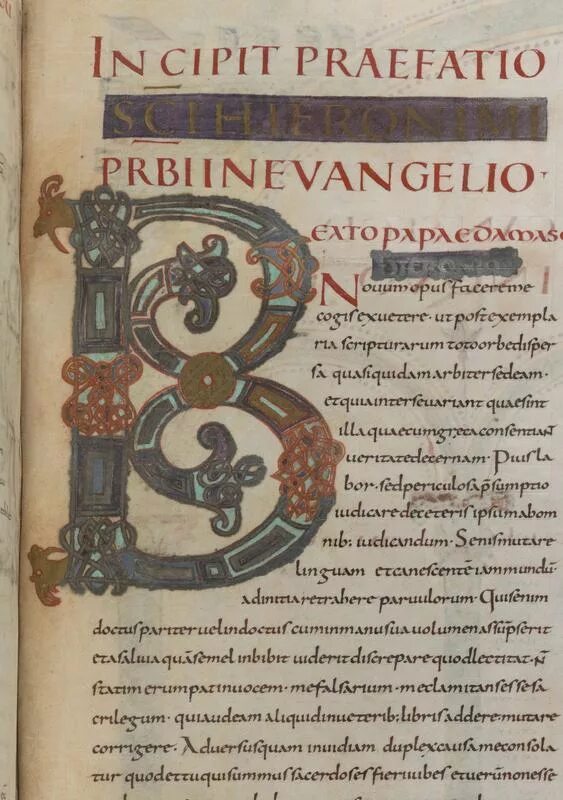 INCIPIT PRAEFATIO
SCI HIERONIMI
PRBI IN EVANGELIO·
BEATO PAPAE DAMASO
HIERONIMUS
Nouum opus facere me
cogis ex uetere· ut post exempla
ria scripturarum toto orbe disper
sa quasi quidam arbiter sedeam·
et quia inter se uariant quae sint
illa quae cum greca consentiant
ueritate decernam· Pius la
bor· sed periculosa p̄sumptio
iudicare de ceteris ipsum abom
nib; iudicandum· Senis mutare
linguam et canescentē iam mundū·
ad initia retrahere paruulorum· Quis enim
doctus pariter uel indoctus cum in manus uolumen assūpserit
et a saliua quā semel inbibit uiderit discrepare quod lectitat· n̄
statim erumpat in uocem· me falsarium· me clamitans esse sa
crilegum· qui audeam aliquid in ueterib; libris addere· mutare
corrigere· Aduersus quam inuidiam duplex causa me consola
tur quod et tu qui summus sacerdos es fieri iubes et uerū non esse